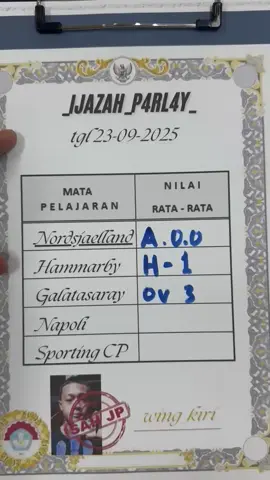 _IJAZAH_P4RL4Y_
tgl 23-09-2025
MATA PELAJARAN NILAI RATA - RATA
Nordsjaelland A.0.0
Hammarby H-1
Galatasaray OV 3
Napoli
Sporting CP
SAH JP
wing kiri